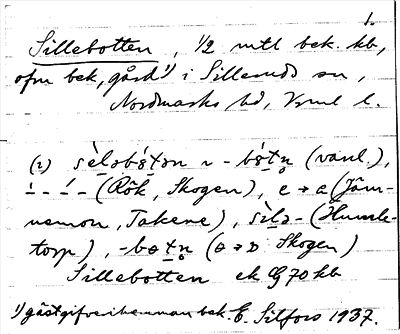 1.
Sillebotten, 1/2 mtl bek. kb,
ofm bek, gård¹⁾ i Sillerud sn,
Nordmarks hd, Vrml l.
(2) sèləbɵ́tən ~ -bɵ́tn̥ (vanl.),
(Rök, Skogen), e → a (Järn-
nemon, Takene), sìlə- (Humle-
torp), -bɵtn̥ (ɵ → ɒ Skogen)
Sillebotten ek G70 kb
¹⁾ gästgifverihemman bek. E. Silfors 1937.